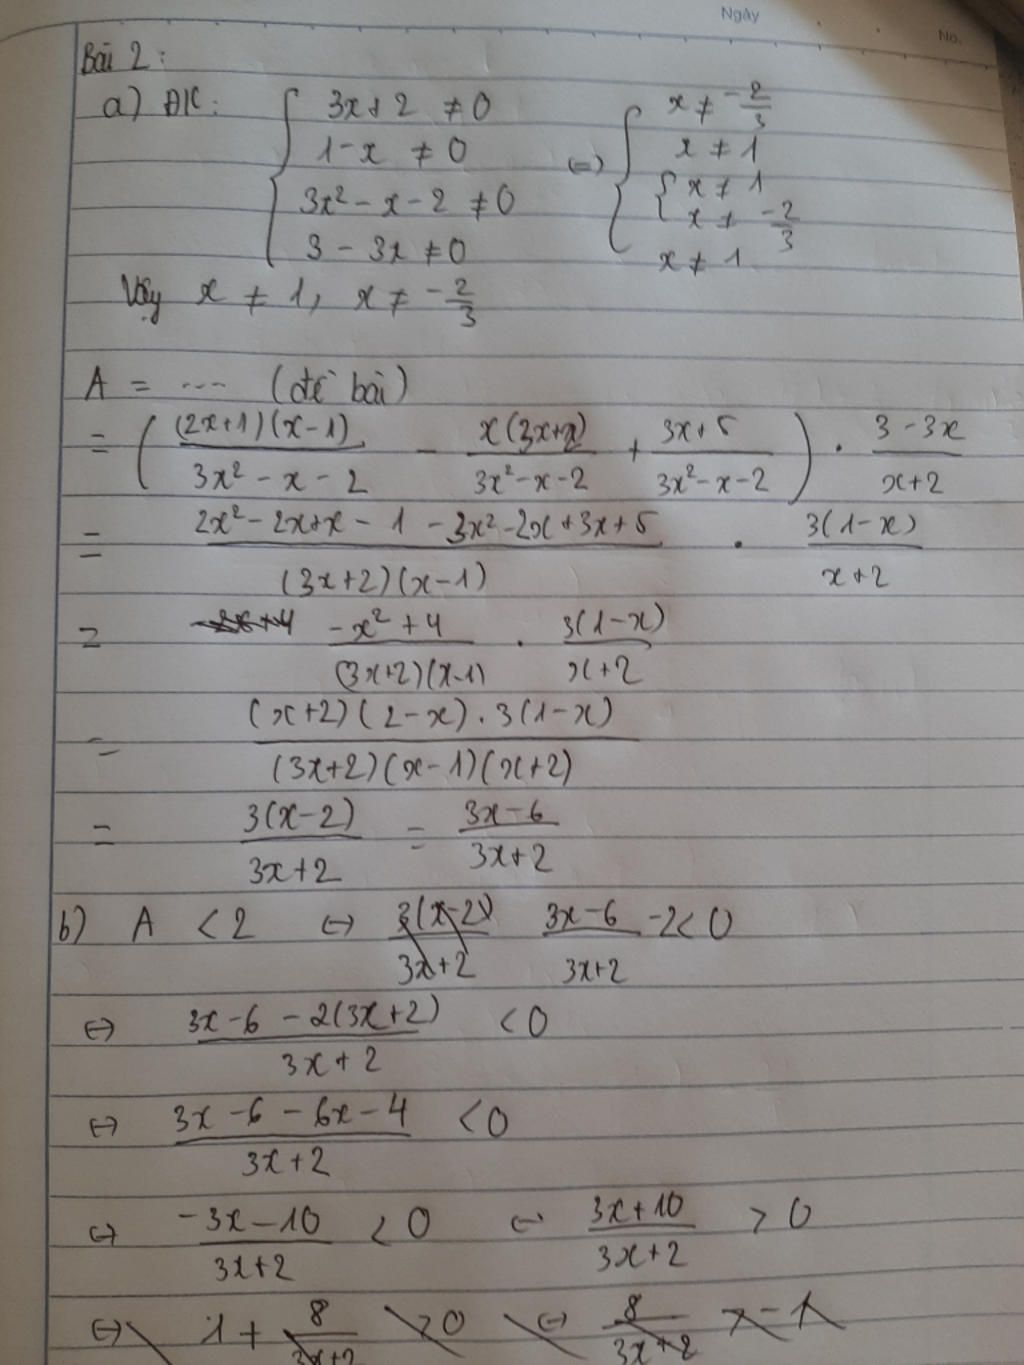 Ngày
No.
Bài 2:
a) ĐK: { 3x+2 ≠ 0 (=) { x ≠ -2/3
1-x ≠ 0 x ≠ 1
3x² - x - 2 ≠ 0 { x ≠ 1
x ≠ -2/3
3 - 3x ≠ 0 x ≠ 1
Vậy x ≠ 1, x ≠ -2/3
A = .... (đề bài)
= ( (2x+1)(x-1) / (3x² - x - 2) - x(3x+2) / (3x² - x - 2) + (3x+5) / (3x² - x - 2) ) . (3 - 3x) / (x+2)
= (2x² - 2x + x - 1 - 3x² - 2x + 3x + 5) / ((3x+2)(x-1)) . 3(1-x) / (x+2)
= (-x² + 4) / ((3x+2)(x-1)) . 3(1-x) / (x+2)
= (x+2)(2-x).3(1-x) / ((3x+2)(x-1)(x+2))
= 3(x-2) / (3x+2) = (3x-6) / (3x+2)
b) A < 2 (=) 3(x-2) / (3x+2) (3x-6) / (3x+2) -2 < 0
(=) (3x-6 - 2(3x+2)) / (3x+2) < 0
(=) (3x - 6 - 6x - 4) / (3x+2) < 0
(=) (-3x - 10) / (3x+2) < 0 (=) (3x+10) / (3x+2) > 0
(=) 1 + 8 / (3x+2) > 0 (=) 8 / (3x+2) > -1